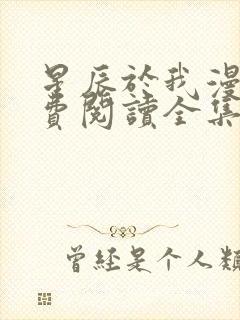 星辰於我漫
費閱讀全集
曾經是个人類